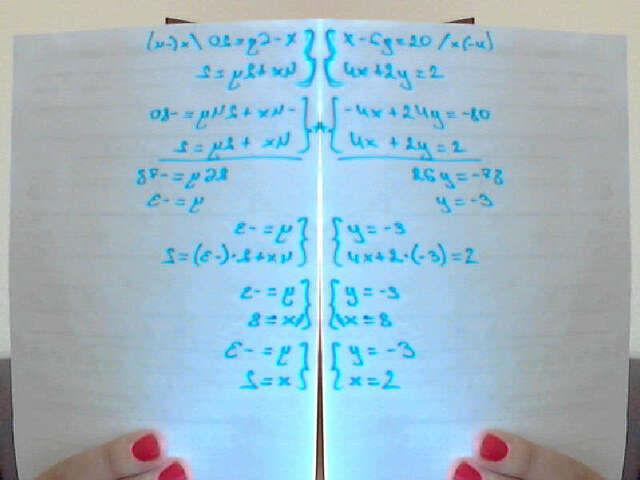 x-6y=20 /x(-4)
4x+2y=2
-4x+24y=-80
4x+2y=2
26y=-78
y=-3
y=-3
4x+2·(-3)=2
y=-3
4x=8
y=-3
x=2